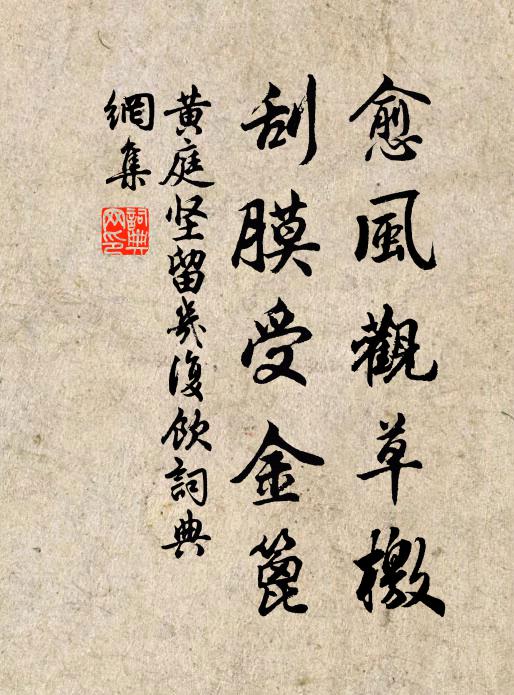 愈風觀草檄
刮膜受金篦
黄庭坚留幾復飲詞典
網集
詞典
网印